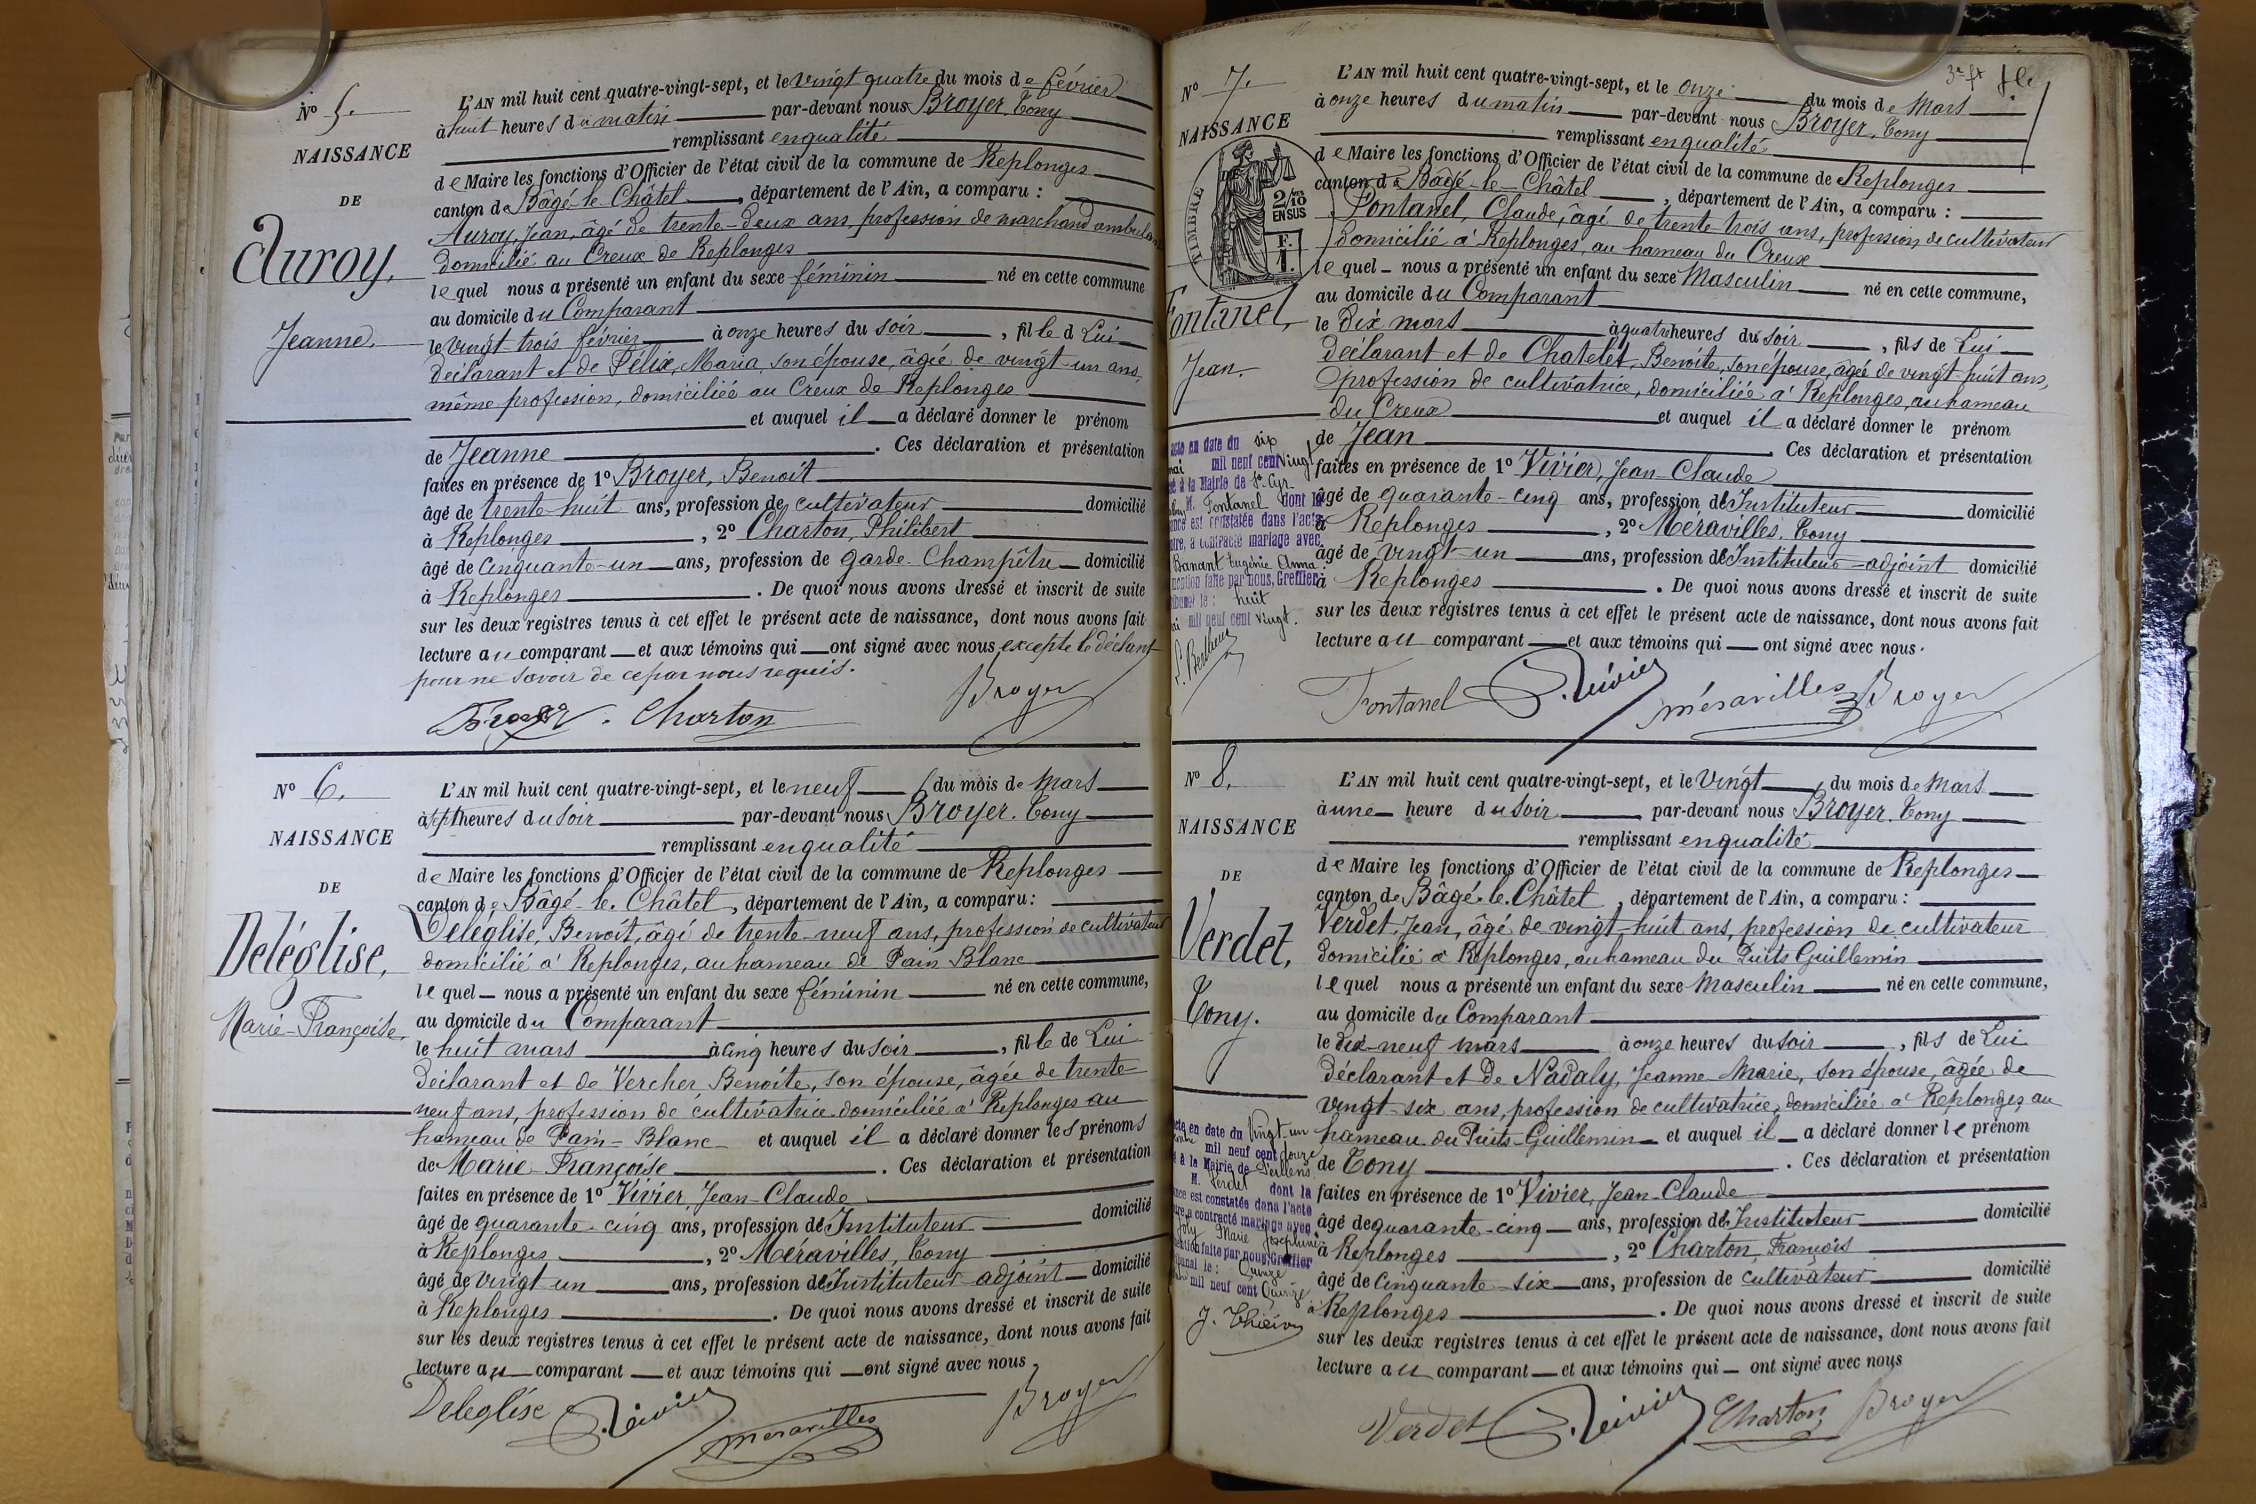 Nº 5.
NAISSANCE
DE
Auroy,
Jeanne.
L'AN mil huit cent quatre-vingt-sept, et le vingt quatre du mois de février
à huit heures du matin par-devant nous Broyer, Tony
remplissant en qualité
de Maire les fonctions d'Officier de l'état civil de la commune de Replonges
canton de Bâgé-le-Châtel, département de l'Ain, a comparu :
Auroy, Jean, âgé de trente-deux ans, profession de marchand ambulant
domicilié au Creux de Replonges
lequel nous a présenté un enfant du sexe féminin né en cette commune
au domicile du Comparant
le vingt trois février à onze heures du soir, fille d Lui
déclarant et de Félix, Maria, son épouse, âgée de vingt-un ans,
même profession, domiciliée au Creux de Replonges
et auquel il a déclaré donner le prénom
de Jeanne. Ces déclaration et présentation
faites en présence de 1º Broyer, Benoit
âgé de trente-huit ans, profession de cultivateur domicilié
à Replonges, 2º Charton, Philibert
âgé de cinquante-un ans, profession de garde-Champêtre domicilié
à Replonges. De quoi nous avons dressé et inscrit de suite
sur les deux registres tenus à cet effet le présent acte de naissance, dont nous avons fait
lecture au comparant et aux témoins qui ont signé avec nous excepté le déclarant
pour ne savoir de ce par nous requis.
Broyer. Charton Broyer
Nº 6.
NAISSANCE
DE
Deléglise,
Marie-Françoise,
L'AN mil huit cent quatre-vingt-sept, et le neuf du mois de Mars
à sept heures du soir par-devant nous Broyer. Tony
remplissant en qualité
de Maire les fonctions d'Officier de l'état civil de la commune de Replonges
canton de Bâgé-le-Châtel, département de l'Ain, a comparu :
Deléglise, Benoît, âgé de trente-neuf ans, profession de cultivateur
domicilié à Replonges, au hameau de Pain Blanc
lequel nous a présenté un enfant du sexe féminin né en cette commune,
au domicile du Comparant
le huit mars à cinq heures du soir, fille de Lui
déclarant et de Vercher Benoîte, son épouse, âgée de trente-
neuf ans, profession de cultivatrice domiciliée à Replonges au
hameau de Pain-Blanc et auquel il a déclaré donner les prénoms
de Marie-Françoise. Ces déclaration et présentation
faites en présence de 1º Vivier, Jean-Claude
âgé de quarante-cinq ans, profession d'Instituteur domicilié
à Replonges, 2º Méravilles, Tony
âgé de vingt-un ans, profession d'Instituteur-adjoint domicilié
à Replonges. De quoi nous avons dressé et inscrit de suite
sur les deux registres tenus à cet effet le présent acte de naissance, dont nous avons fait
lecture au comparant et aux témoins qui ont signé avec nous
Deléglise Vivier Méravilles Broyer
Nº 7.
NAISSANCE
TIMBRE
2/10
EN SUS
F.
1.
Fontanel,
Jean.
L'AN mil huit cent quatre-vingt-sept, et le onze du mois de Mars
à onze heures du matin par-devant nous Broyer, Tony
remplissant en qualité
de Maire les fonctions d'Officier de l'état civil de la commune de Replonges
canton de Bâgé-le-Châtel, département de l'Ain, a comparu :
Fontanel, Claude, âgé de trente-trois ans, profession de cultivateur
domicilié à Replonges, au hameau du Creux
lequel nous a présenté un enfant du sexe Masculin né en cette commune,
au domicile du Comparant
le dix mars à quatre heures du soir, fils de Lui
déclarant et de Chatelet, Benoîte, son épouse, âgée de vingt-huit ans,
profession de cultivatrice, domiciliée à Replonges, au hameau
du Creux et auquel il a déclaré donner le prénom
de Jean. Ces déclaration et présentation
faites en présence de 1º Vivier, Jean-Claude
âgé de quarante-cinq ans, profession d'Instituteur domicilié
à Replonges, 2º Méravilles, Tony
âgé de vingt-un ans, profession d'Instituteur-adjoint domicilié
à Replonges. De quoi nous avons dressé et inscrit de suite
sur les deux registres tenus à cet effet le présent acte de naissance, dont nous avons fait
lecture au comparant et aux témoins qui ont signé avec nous.
Fontanel Vivier Méravilles Broyer
acte en date du six
mai mil neuf cent Vingt
à la Mairie de St-Cyr
M. Fontanel dont la
est constatée dans l'acte
contracté mariage avec
Banant Eugénie Anna
mention faite par nous, Greffier
le : huit
mil neuf cent Vingt.
Nº 8.
NAISSANCE
DE
Verdet,
Tony.
L'AN mil huit cent quatre-vingt-sept, et le Vingt du mois de Mars
à une heure du soir par-devant nous Broyer. Tony
remplissant en qualité
de Maire les fonctions d'Officier de l'état civil de la commune de Replonges
canton de Bâgé-le-Châtel, département de l'Ain, a comparu :
Verdet, Jean, âgé de vingt-huit ans, profession de cultivateur
domicilié à Replonges, au hameau du Puits Guillemin
lequel nous a présenté un enfant du sexe Masculin né en cette commune,
au domicile du Comparant
le dix-neuf mars à onze heures du soir, fils de Lui
déclarant et de Nadaly, Jeanne Marie, son épouse, âgée de
vingt-six ans, profession de cultivatrice, domiciliée à Replonges, au
hameau du Puits-Guillemin et auquel il a déclaré donner le prénom
de Tony. Ces déclaration et présentation
faites en présence de 1º Vivier, Jean-Claude
âgé de quarante-cinq ans, profession d'Instituteur domicilié
à Replonges, 2º Charton, François
âgé de Cinquante-six ans, profession de cultivateur domicilié
à Replonges. De quoi nous avons dressé et inscrit de suite
sur les deux registres tenus à cet effet le présent acte de naissance, dont nous avons fait
lecture au comparant et aux témoins qui ont signé avec nous
Verdet Vivier Charton Broyer
acte en date du Vingt-un
mil neuf cent douze
à la Mairie de
M. Verdet dont la
est constatée dans l'acte
a contracté mariage avec
Joly Marie Joséphine
mention faite par nous, Greffier
le : Quinze
mil neuf cent Quinze